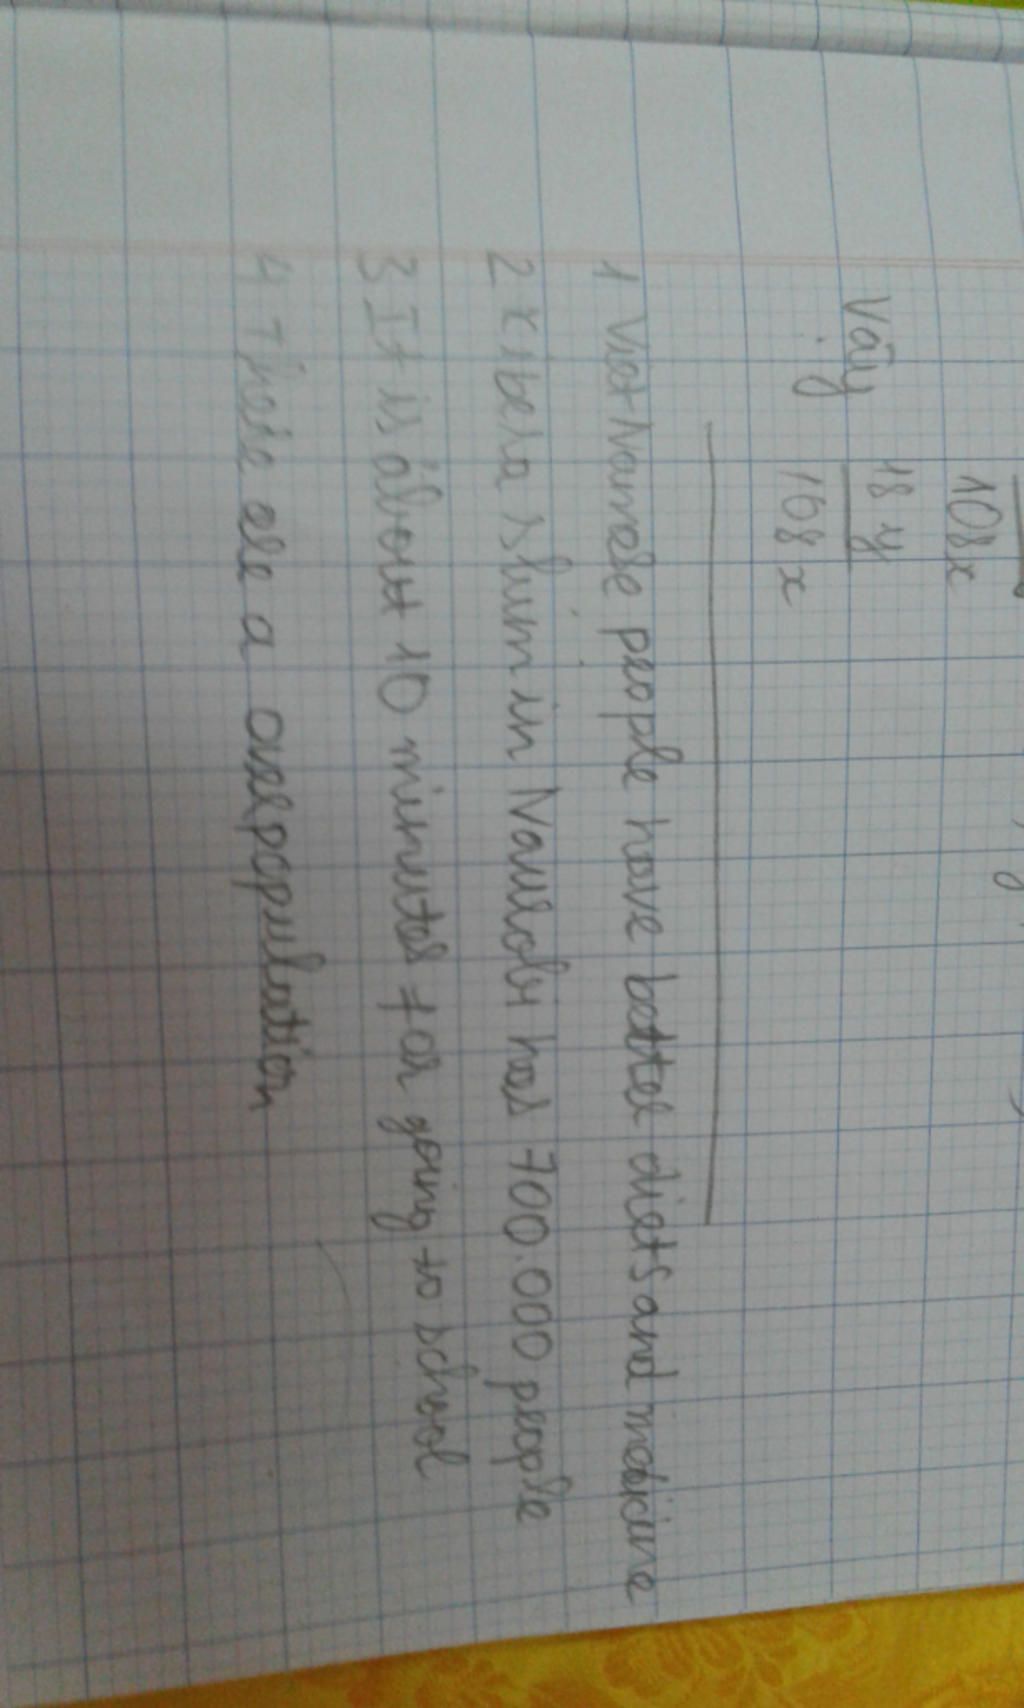 108x
Vậy 18y
108x
1 Viet Namese people have better diets and medicine
2 Kibera slum in Nairobi has 700.000 people
3 It is about 10 minutes for going to school
4 There are a overpopulation